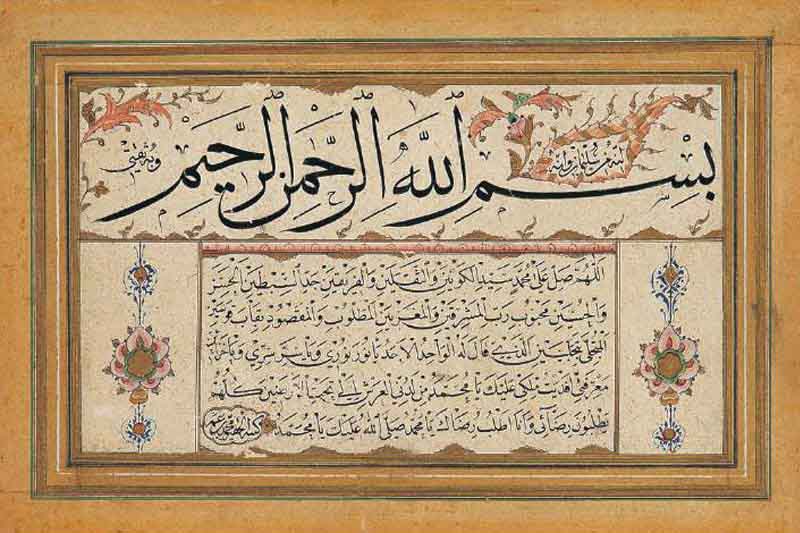 إنه من سليمان وإنه
بِسْمِ اللَّهِ الرَّحْمٰنِ الرَّحِيمِ
وبه ثقتي
اللهم صل على محمد سيد الكونين والثقلين والفريقين جد السمطين الحسن
والحسين محبوب رب المشرقين والمغربين المطلوب والمقصود بقاب قوسين
المتجلي بتجليين الذي قال له الواحد الاحد يا نور نوري ويا سر سري ويا خزائن
معرفتي افديت ملكي عليك يا محمد من لدن العرش الى تحت الارضين كلهم
يطلبون رضائي وانا اطلب رضاك يا محمد صلى الله عليك يا محمد